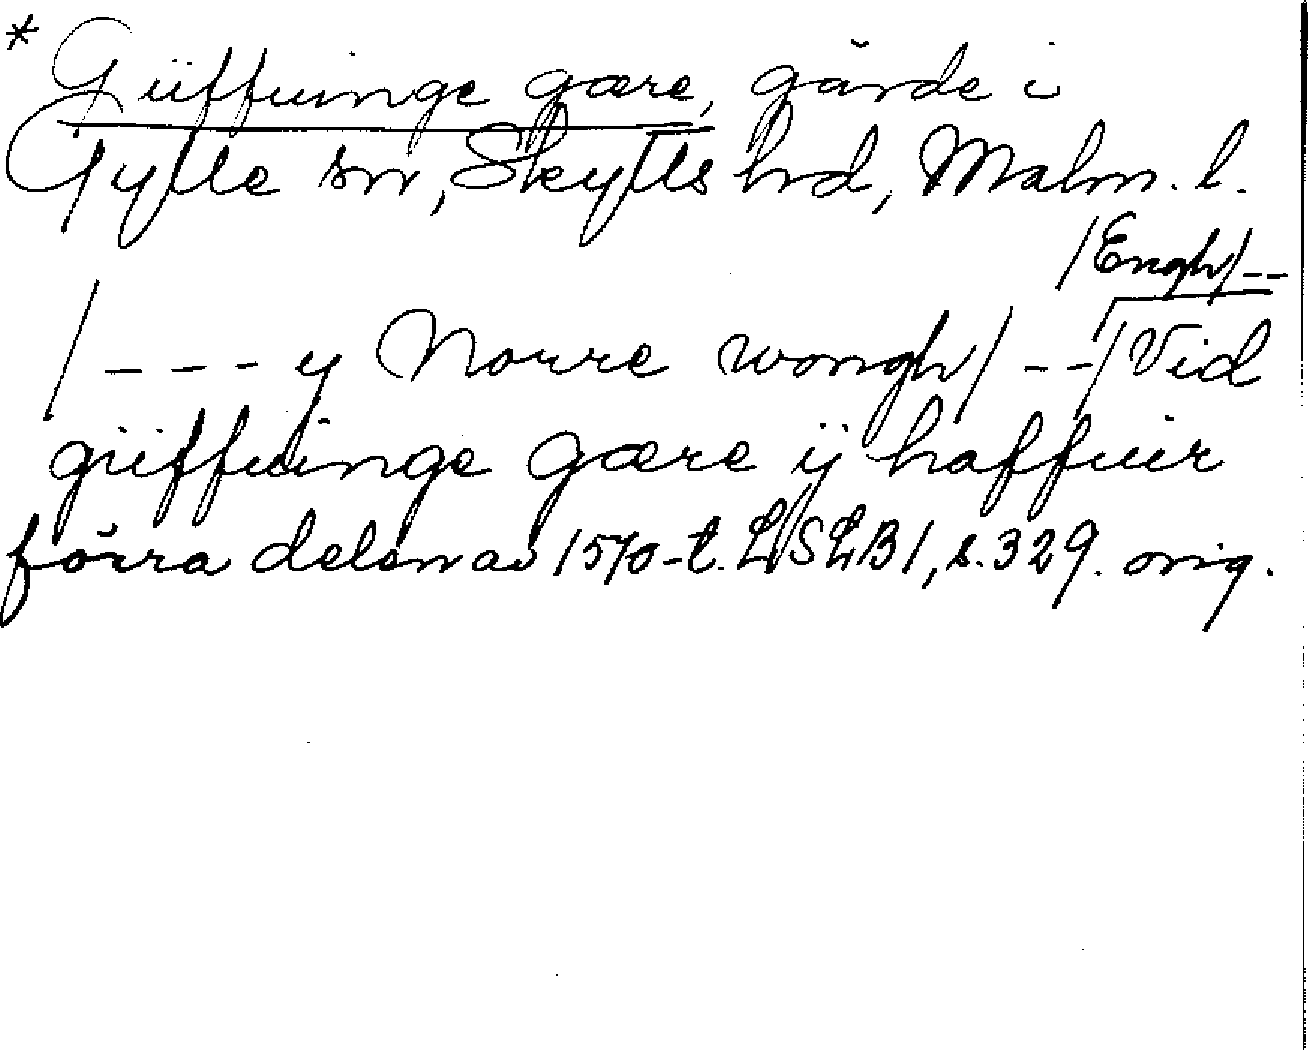 * Güffuinge gære, gärde i
Gylle sn, Skytts hd, Malm. l.
/Engh/--
/---y Norre wongh/--/Vid
güffuinge gære ÿ haffuir
förra delen av 1570-t. LSLB1, s.329. orig.